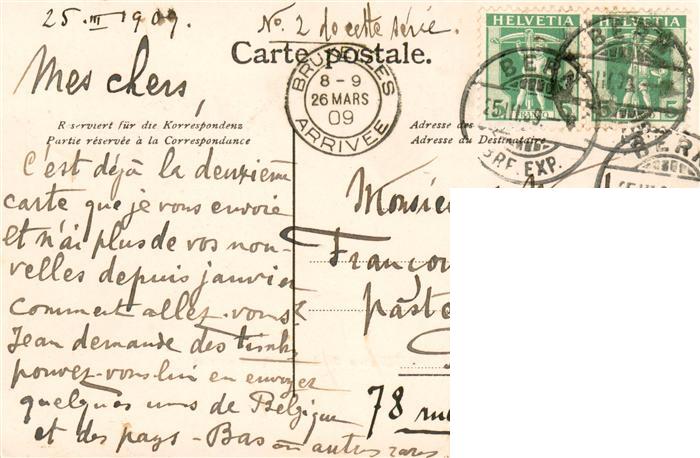 25. III 1909.
No. 2 de cette série.
HELVETIA HELVETIA
Carte postale.
BRUXELLES
8-9
26 MARS
09
ARRIVÉE
BERN
BRF. EXP.
BERN
5 5
Mes chers,
Reserviert für die Korrespondenz
Partie réservée à la Correspondance
Adresse des
Adresse du Destinataire
C'est déjà la deuxième
carte que je vous envoie
et n'ai plus de vos nou-
velles depuis janvier
comment allez-vous?
Jean demande des timbres
pouvez-vous lui en envoyer
quelques uns de Belgique
et des pays-Bas ou autres rares
Monsieu
Françoi
paste
78 rue